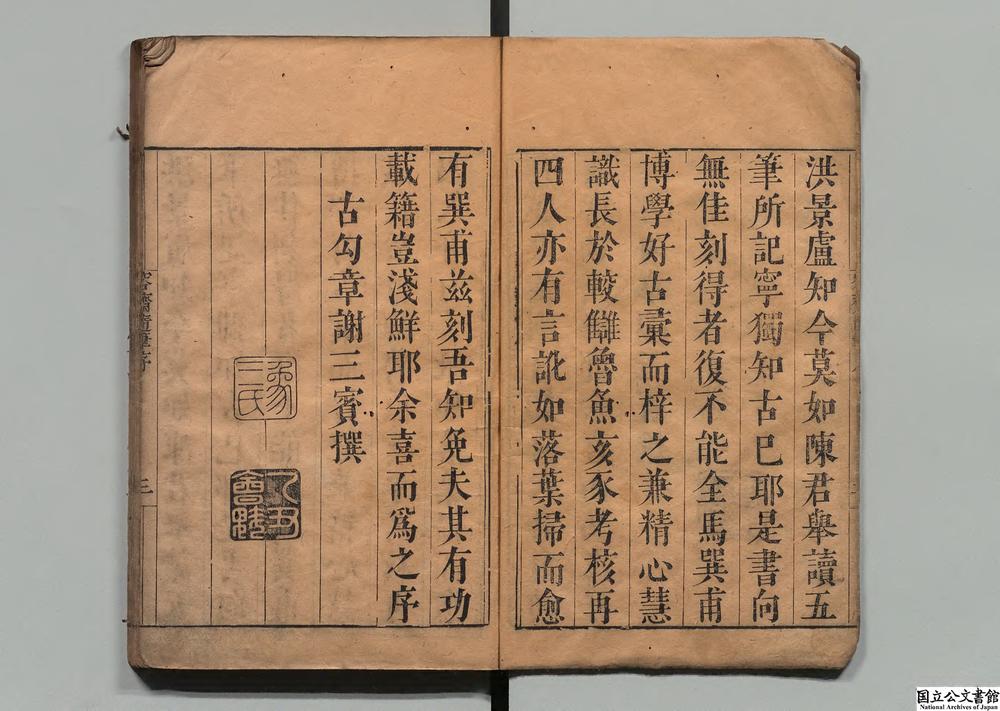 洪景盧知今莫如陳君舉讀五
筆所記寧獨知古已耶是書向
無佳刻得者復不能全馬巽甫
博學好古彚而梓之兼精心慧
識長於較讎魯魚亥豕考核再
四人亦有言訛如落葉掃而愈
有巽甫兹刻吾知免夫其有功
載籍豈淺鮮耶余喜而爲之序
古勾章謝三賓撰
三
国立公文書館
National Archives of Japan